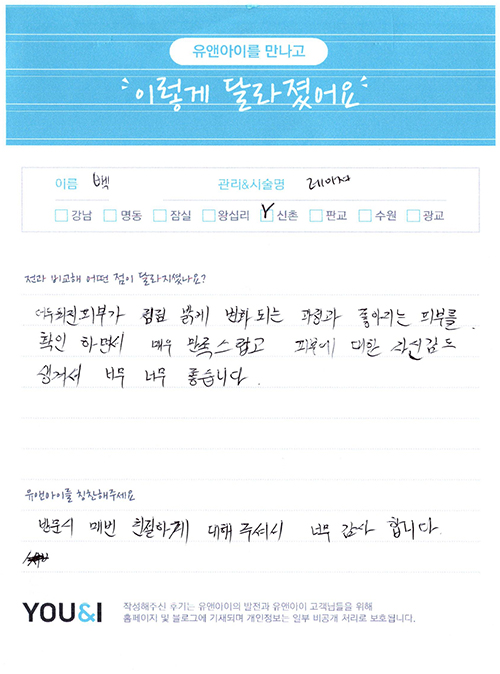 유앤아이를 만나고
이렇게 달라졌어요
이름 백 관리&시술명 레이저
강남 명동 잠실 왕십리 신촌 판교 수원 광교
전과 비교해 어떤 점이 달라지셨나요?
어두워진 피부가 점점 밝게 변화 되는 과정과 좋아지는 피부를
확인 하면서 매우 만족스럽고 피부에 대한 자신감도
생겨서 너무 너무 좋습니다.
유앤아이를 칭찬해주세요
방문시 매번 친절하게 대해 주셔서 너무 감사 합니다.
YOU&I 작성해주신 후기는 유앤아이의 발전과 유앤아이 고객님들을 위해
홈페이지 및 블로그에 기재되며 개인정보는 일부 비공개 처리로 보호됩니다.